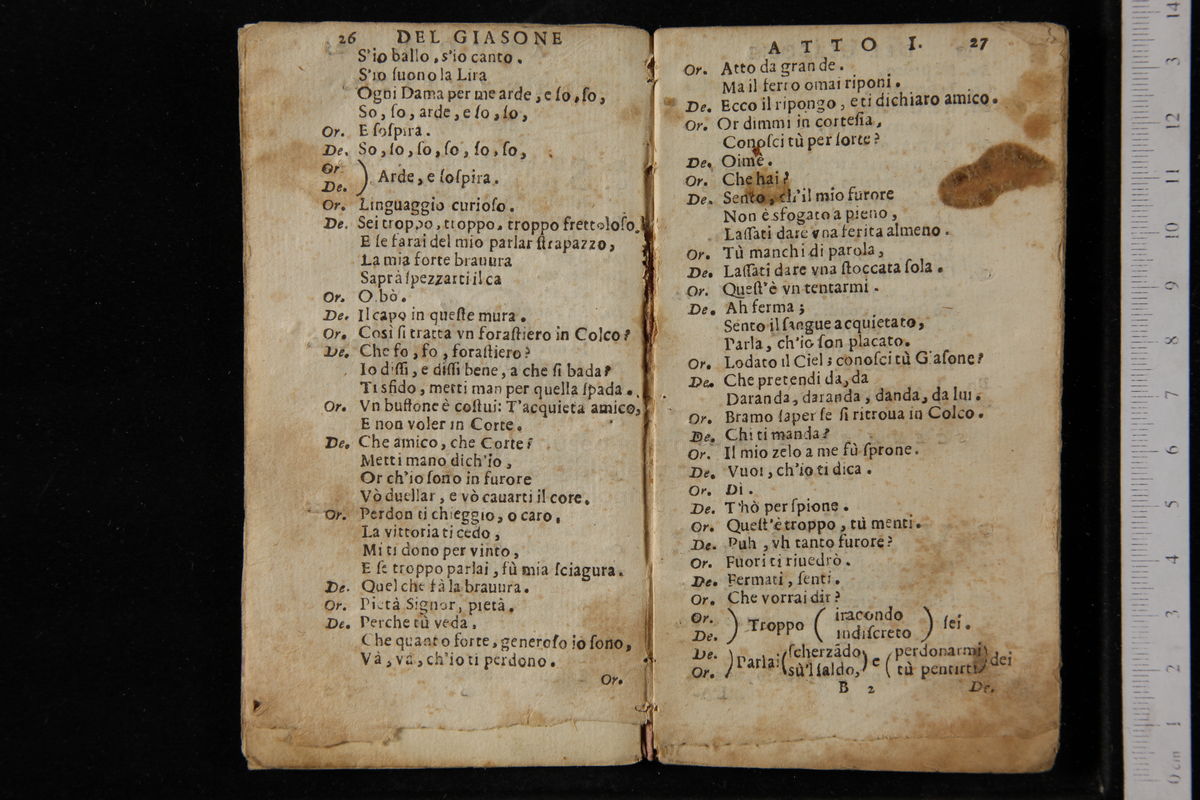 26 DEL GIASONE
S'io ballo, s'io canto.
S'io ſuono la Lira
Ogni Dama per me arde, e ſo, ſo,
So, ſo, arde, e ſo, ſo,
Or. E ſoſpira.
De. So, ſo, ſo, ſo, ſo, ſo,
Or
De. ) Arde, e ſoſpira.
Or. Linguaggio curioſo.
De. Sei troppo, troppo, troppo frettoloſo.
E ſe farai del mio parlar ſtrapazzo,
La mia forte brauura
Saprà ſpezzarti il ca
Or. O bò.
De. Il capo in queſte mura.
Or. Così ſi tratta vn foraſtiero in Colco?
De. Che fo, fo, foraſtiero?
Io diſſi, e diſſi bene, a che ſi bada?
Ti sfido, metti man per quella ſpada.
Or. Vn buffone è coſtui: T'acquieta amico,
E non voler in Corte.
De. Che amico, che Corte?
Metti mano dich'io,
Or ch'io ſono in furore
Vò duellar, e vò cauarti il core.
Or. Perdon ti chieggio, o caro,
La vittoria ti cedo,
Mi ti dono per vinto,
E ſe troppo parlai, fù mia ſciagura.
De. Quel che fà la brauura.
Or. Pietà Signor, pietà.
De. Perche tù veda,
Che quanto forte, generoſo io ſono,
Và, và, ch'io ti perdono.
Or.
ATTO I. 27
Or. Atto da grande.
Ma il ferro omai riponi.
De. Ecco il ripongo, e ti dichiaro amico.
Or. Or dimmi in corteſia,
Conoſci tù per ſorte?
De. Oimè.
Or. Che hai?
De. Sento, ch'il mio furore
Non è sfogato a pieno,
Laſſati dare vna ferita almeno.
Or. Tù manchi di parola,
De. Laſſati dare vna ſtoccata ſola.
Or. Queſt'è vn tentarmi.
De. Ah ferma;
Sento il ſangue acquietato,
Parla, ch'io ſon placato.
Or. Lodato il Ciel; conoſci tù Giaſone?
De. Che pretendi da, da
Daranda, daranda, danda, da lui.
Or. Bramo ſaper ſe ſi ritroua in Colco.
De. Chi ti manda?
Or. Il mio zelo a me fù ſprone.
De. Vuoi, ch'io ti dica.
Or. Di.
De. T'hò per ſpione.
Or. Queſt'è troppo, tù menti.
De. Puh, vh tanto furore?
Or. Fuori ti riuedrò.
De. Fermati, ſenti.
Or. Che vorrai dir?
Or.
De. ) Troppo ( iracondo
indiſcreto ) ſei.
De.
Or. ) Parlai (ſcherzãdo
sù'l ſaldo,) e (perdonarmi
tù pentirti) dei
B 2 De.